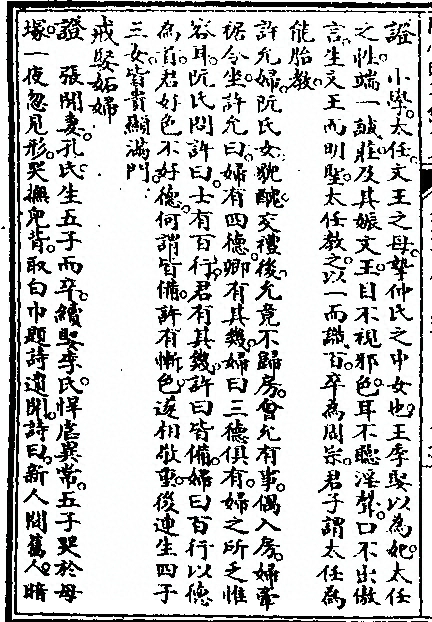 證　小學太任文王之母摯仲氏之中女也王季娶以為妃太任
之性端一誠莊及其娠文王目不視邪色耳不聽淫聲口不出傲
言生文王而明聖太任教之以一而識百卒為周宗君子謂太任為
能胎教
許允婦阮氏女貌醜交禮後允竟不歸房會允有事偶入房婦牽
裾令坐許允曰婦有四德卿有其幾婦曰三德俱有婦之所乏惟
容耳阮氏問許曰士有百行君有其幾許曰皆備婦曰百行以德
為首君好色不好德何謂皆備許有慚色遂相敬重後連生四子
三女皆貴顯滿門
戒娶妬婦
證　張聞妻孔氏生五子而卒續娶李氏悍虐異常五子哭於母
塚一夜忽見形哭撫兒背取白巾題詩遺聞詩曰新人閗舊人暗